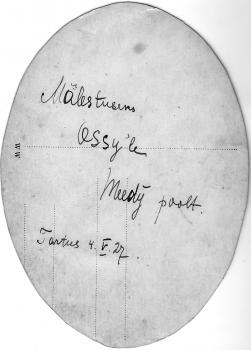 Mälestuseks
Ossy'le
Meedy poolt.
Tartus 4. V. 27.
WW